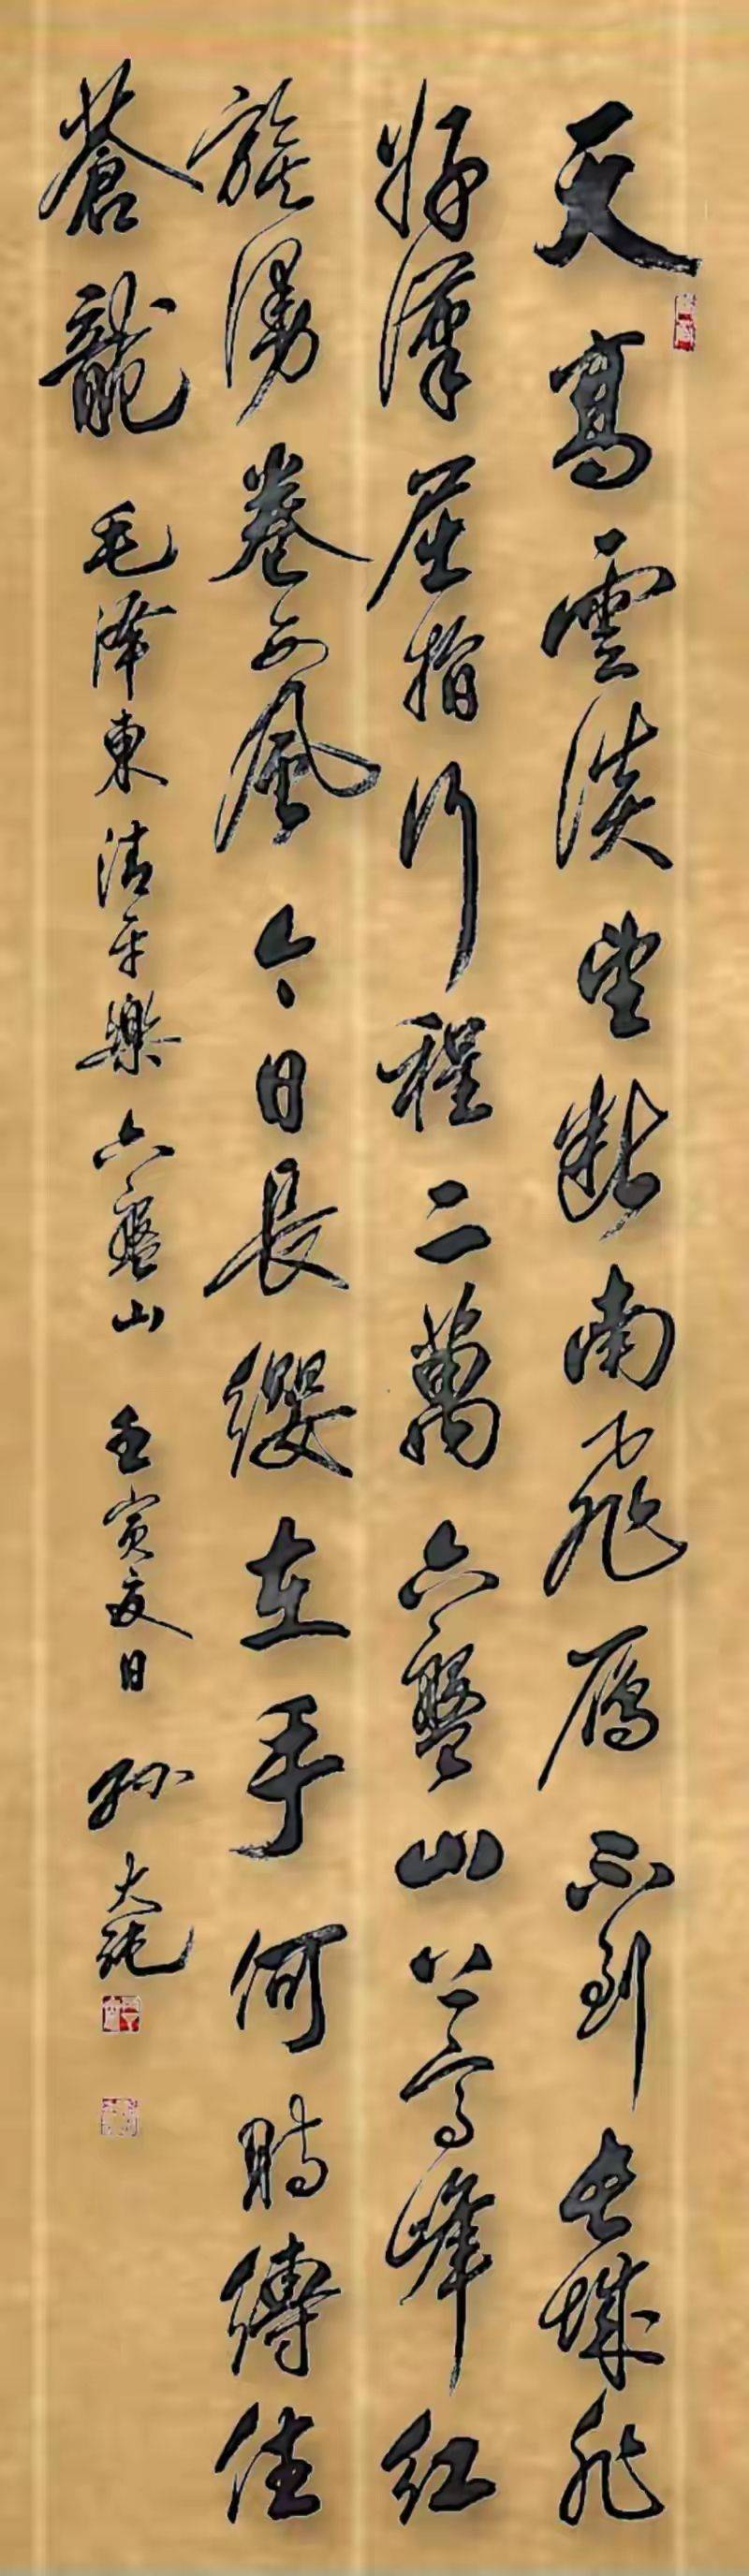 天高雲淡望断南飛雁不到長城非
好漢屈指行程二萬六盤山上高峰紅
旗漫卷西風今日長纓在手何時縛住
蒼龍 毛泽東清平樂六盤山 壬寅夏日 孫大